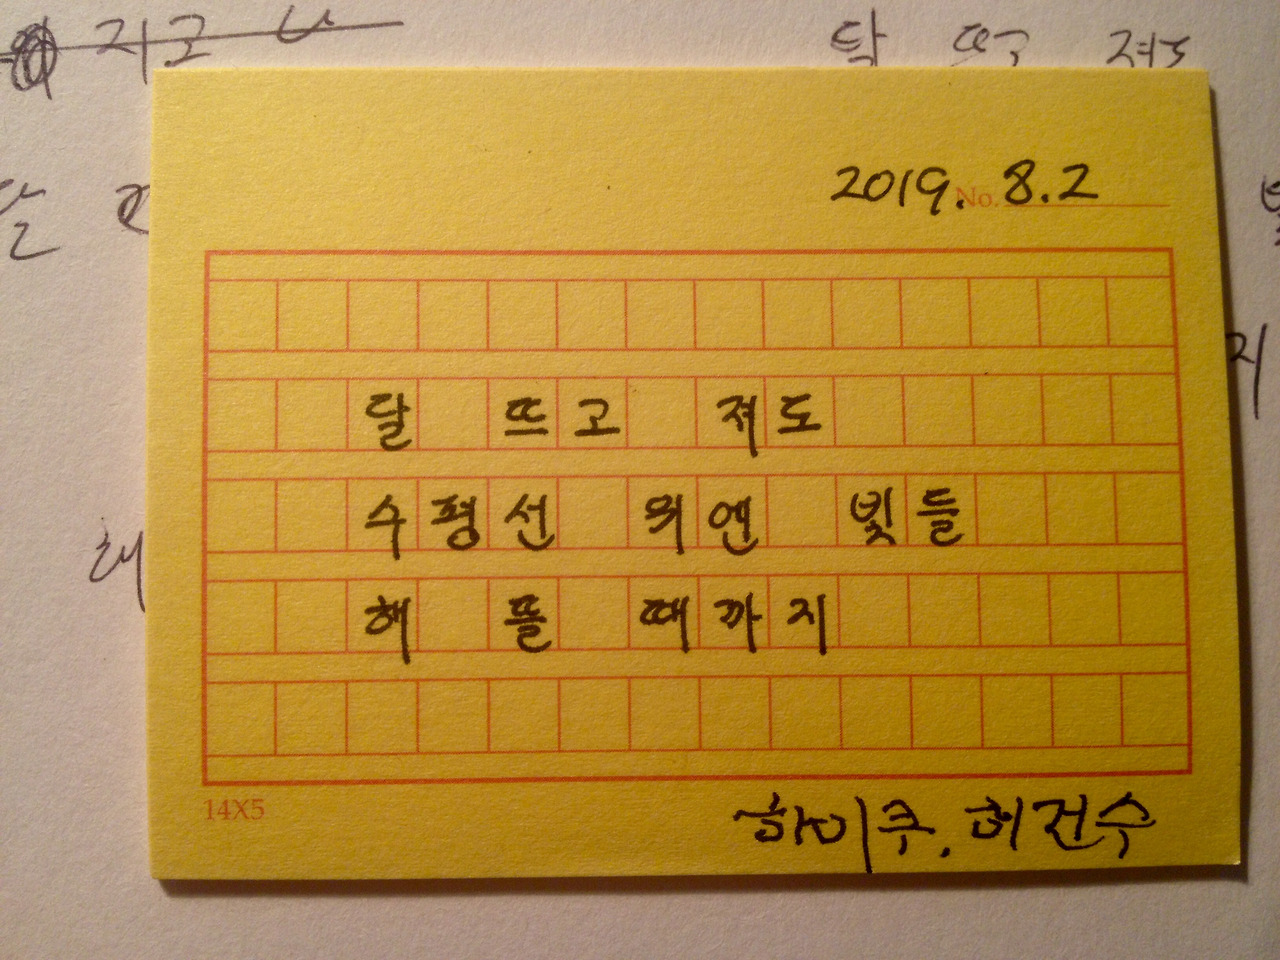 지고
달 뜨고 져도
2019. No. 8.2
달 뜨고 져도
수평선 위엔 빛들
해 뜰 때까지
14X5
하이쿠. 허건수